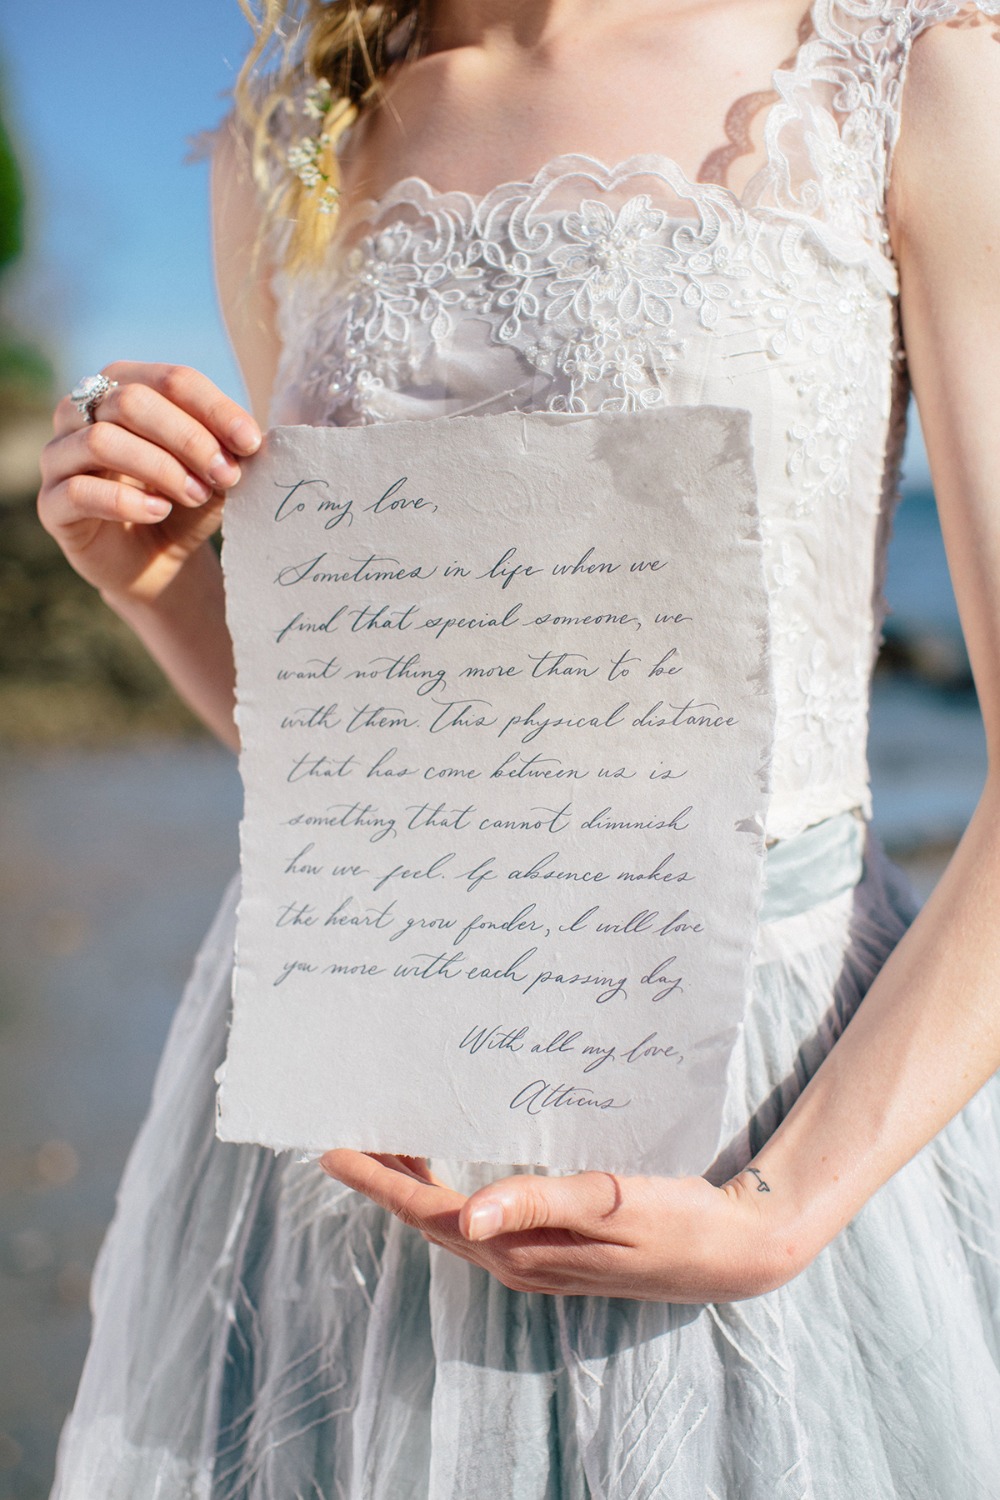 To my love,
Sometimes in life when we
find that special someone, we
want nothing more than to be
with them. This physical distance
that has come between us is
something that cannot diminish
how we feel. If absence makes
the heart grow fonder, I will love
you more with each passing day.
With all my love,
Atticus